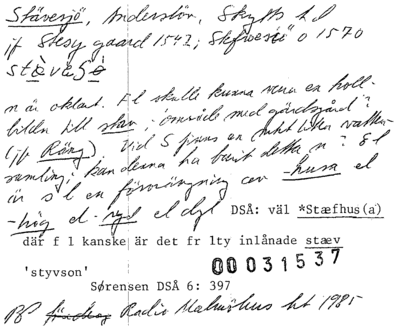 Stävesjö, Anderslöv, Skytts hd
jf Stesy gaard 1542; Stefuesiö o 1570
stèvəsè
n är oklart. F l skulle kunna vara en holl-
bilden till stav i område med gärdsgård?
(jfr Räng) Vid S finns en mkt liten vatten-
samling; kan denna ha burit detta n? S l
är s l en förvrängning av -husa el
-hög el -ryd el dyl DSÅ: väl *Stæfhus(a)
där f l kanske är det fr lty inlånade stæv
'styvson' 00031537
Sørensen DSÅ 6: 397
Radio Malmöhus ht 1985